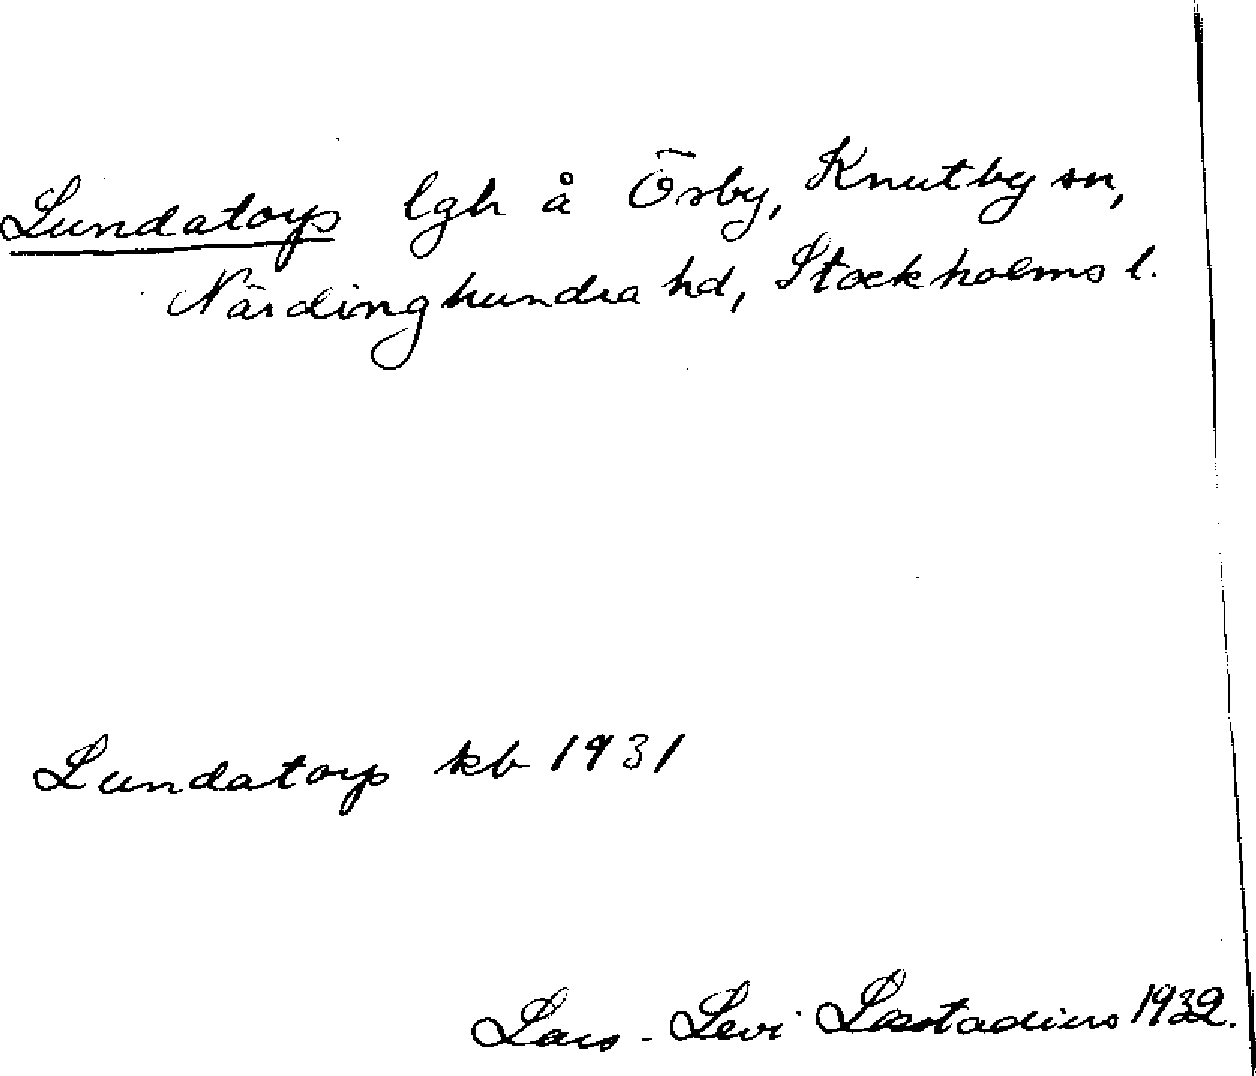 Lundatorp lgh å Örby, Knutby sn,
Närdinghundra hd, Stockholms l.
Lundatorp kb 1931
Lars-Levi Læstadius 1932.